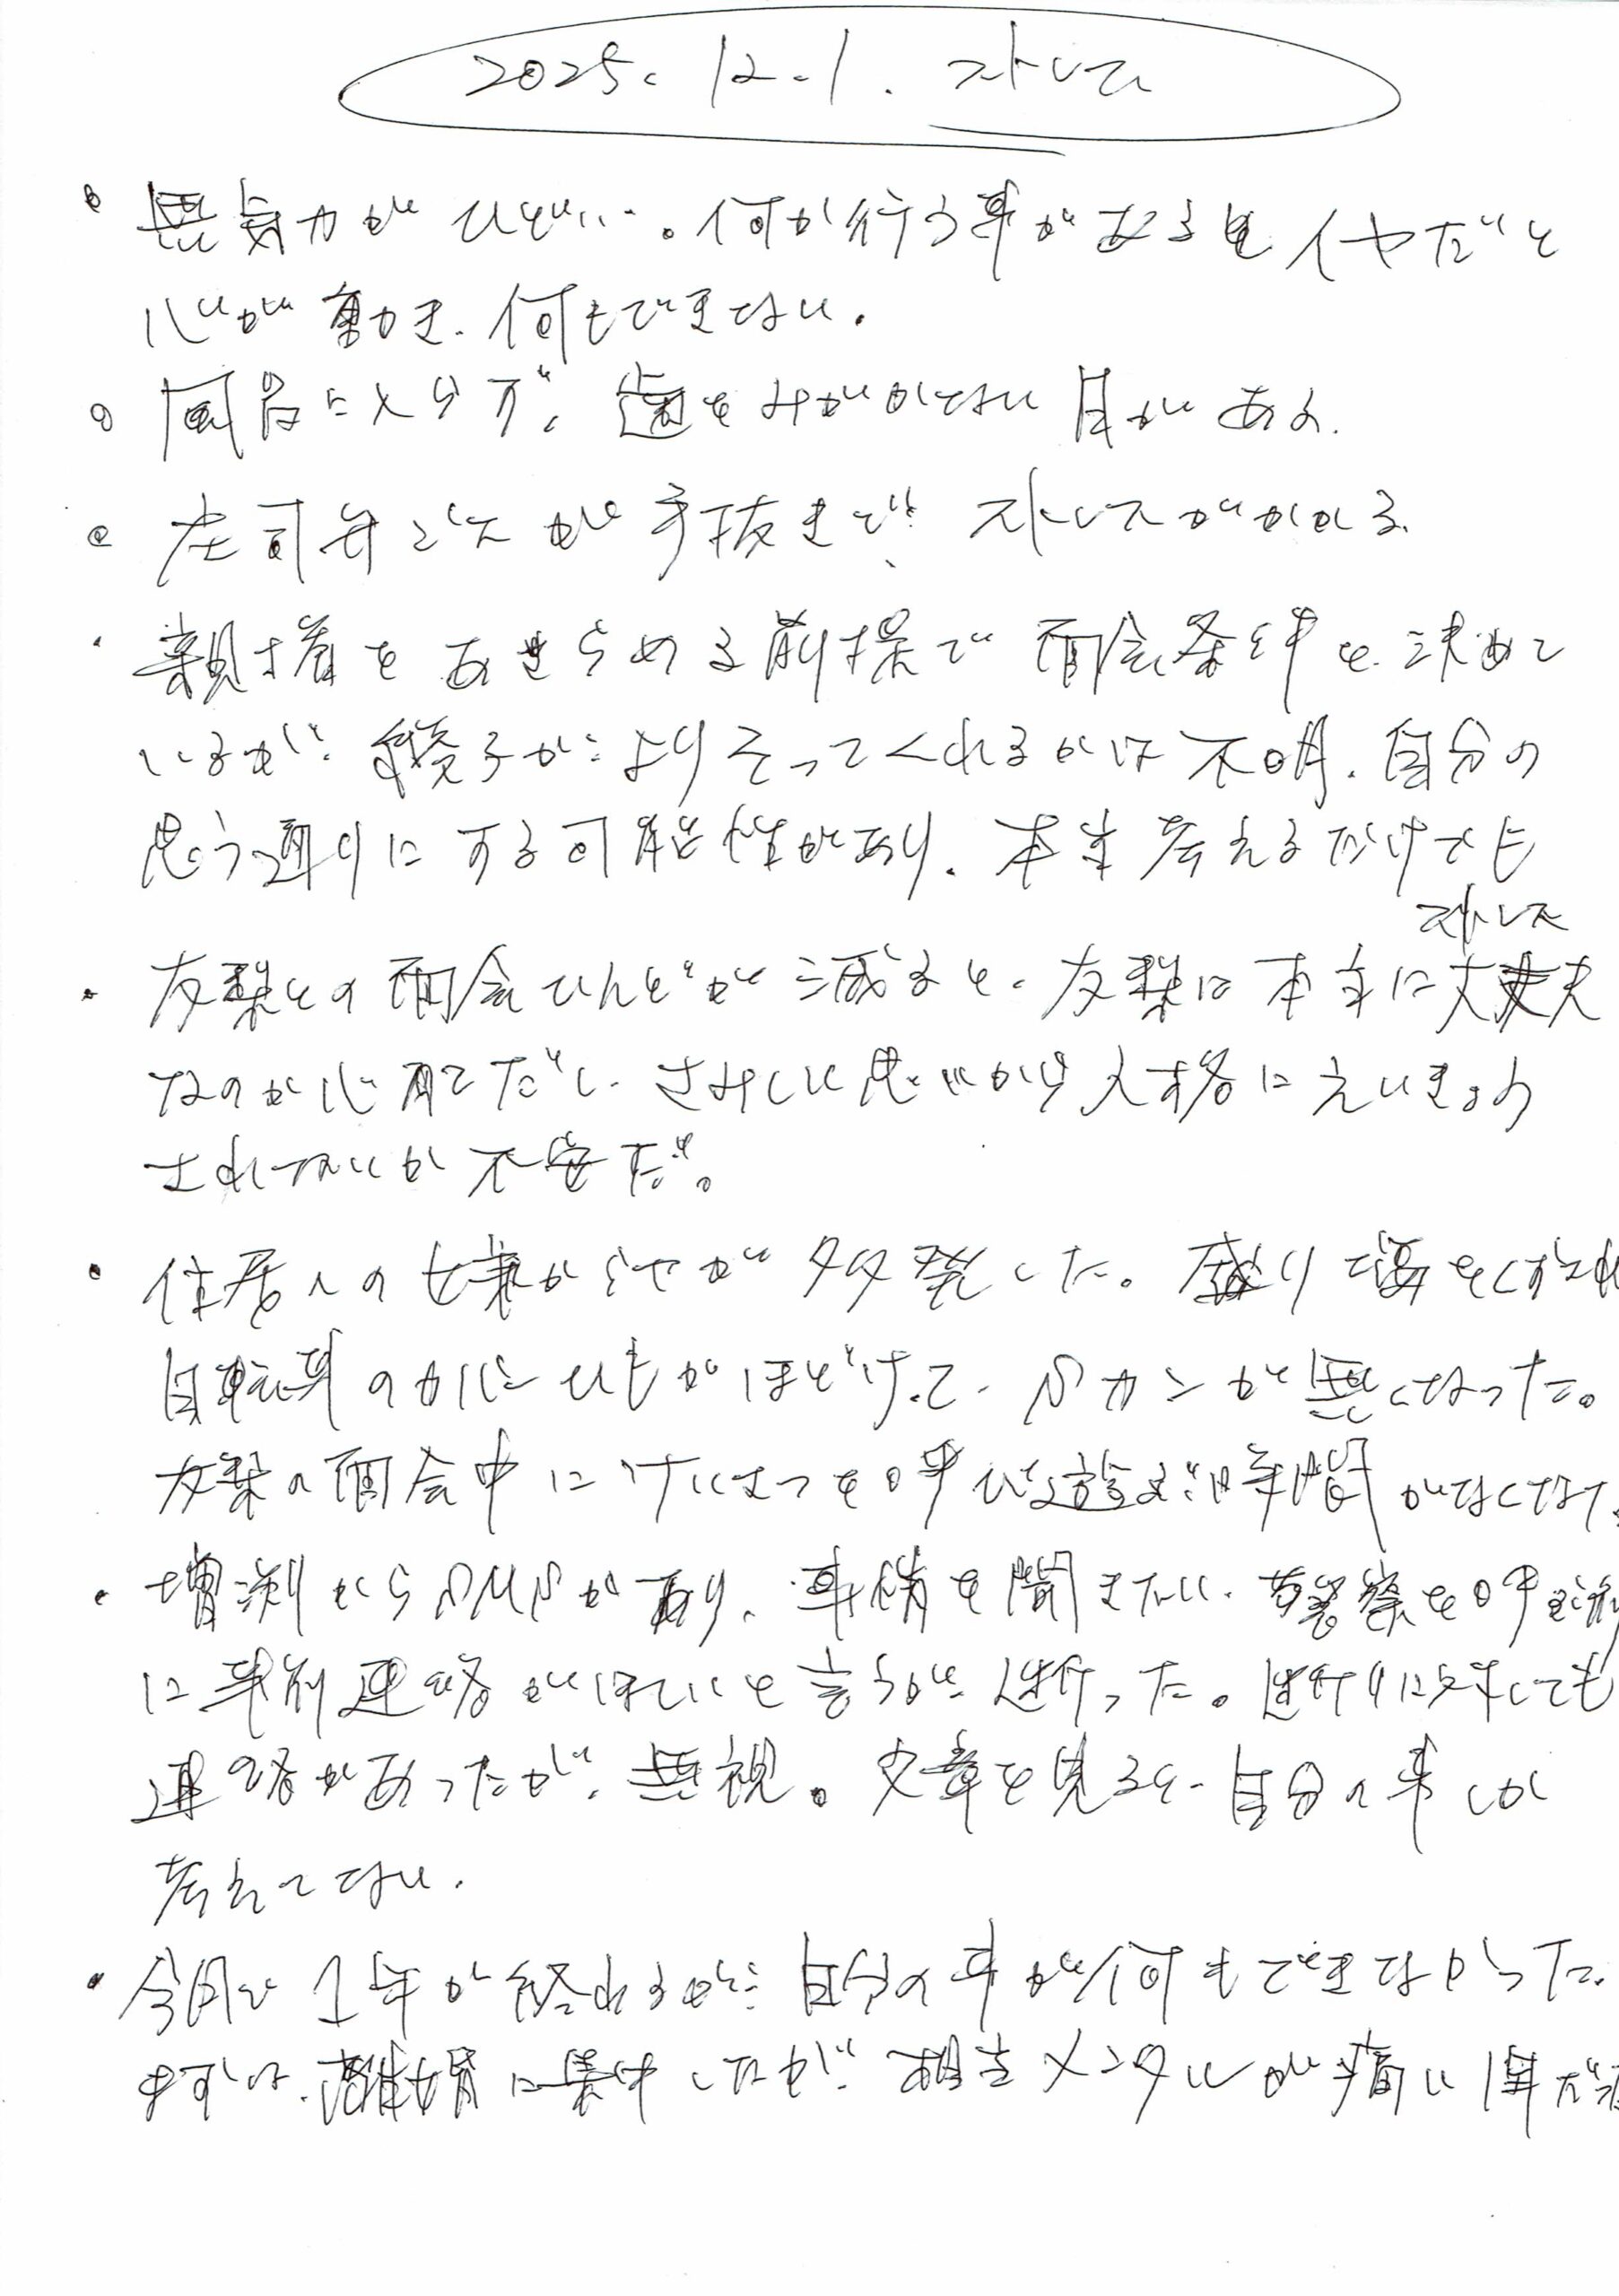 2025.12.1. ストレス
・無気力がひどい。何か行う事があるとイヤだと
心が動き、何もできない。
・風呂に入らず、歯をみがかない日がある。
・庄司弁ごへが手抜きで、ストレスがかかる。
・親権をあきらめる前提で面会条件を決めて
いるが、綾子がよりそってくれるかは不明。自分の
思う通りにする可能性があり、本当考えるだけでも
ストレス
・友梨との面会ひんどが減ると、友梨は本当に大丈夫
なのか心配だし、さみしい思いから人格にえいきょう
されないか不安だ。
・住居への嫌がらせが多発した。盛り塩をくずされ
自転車のカバーひもがほどけて、Sカンが無くなった。
友梨の面会中にけいさつを呼び遊ぶ時間がなくなった
・増渕からSMSがあり、事情を聞きたい、警察を呼ぶ前
に事前連絡がほしいと言うが、断った。断りに対しても
連絡があったが、無視。文章を見ると、自分の事しか
考えてない。
・今月で1年が終わるが、自分の事が何もできなかった。
まずは、離婚に集中したが、相当メンタルが痛い1年だ